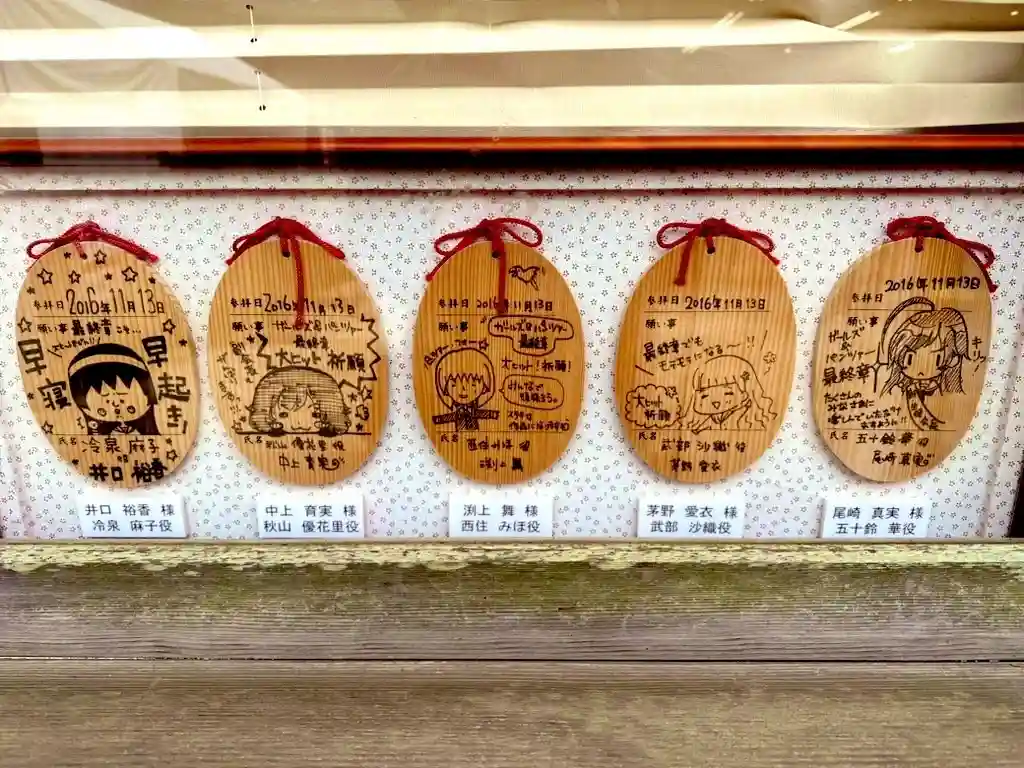 参拝日 2016年11月13日
願い事 最終章こそ…
早寝
早起き!
氏名 冷泉 麻子
井口 裕香
参拝日 2016年11月13日
願い事 ガールズ&パンツァー
最終章
大ヒット祈願
氏名 秋山 優花里 役
中上 育実
参拝日 2016年11月13日
願い事 ガールズ&パンツァー
最終章
大ヒット!祈願!
氏名 西住 みほ 役
渕上 舞
参拝日 2016年11月13日
願い事
最終章でも
モテモテになる〜!!
大ヒット
祈願
氏名 武部 沙織 役
茅野 愛衣
参拝日 2016年11月13日
願い事
ガールズ
&
パンツァー
最終章
キリッ
たくさんの
みなさまに
氏名 五十鈴 華 役
尾崎 真実
井口 裕香 様
冷泉 麻子役
中上 育実 様
秋山 優花里役
渕上 舞 様
西住 みほ役
茅野 愛衣 様
武部 沙織役
尾崎 真実 様
五十鈴 華役